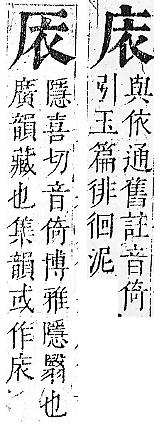 庡
與依通舊註音倚
引玉篇徘徊泥
㕈
隱喜切音倚博雅隱翳也
廣韻藏也集韻或作庡